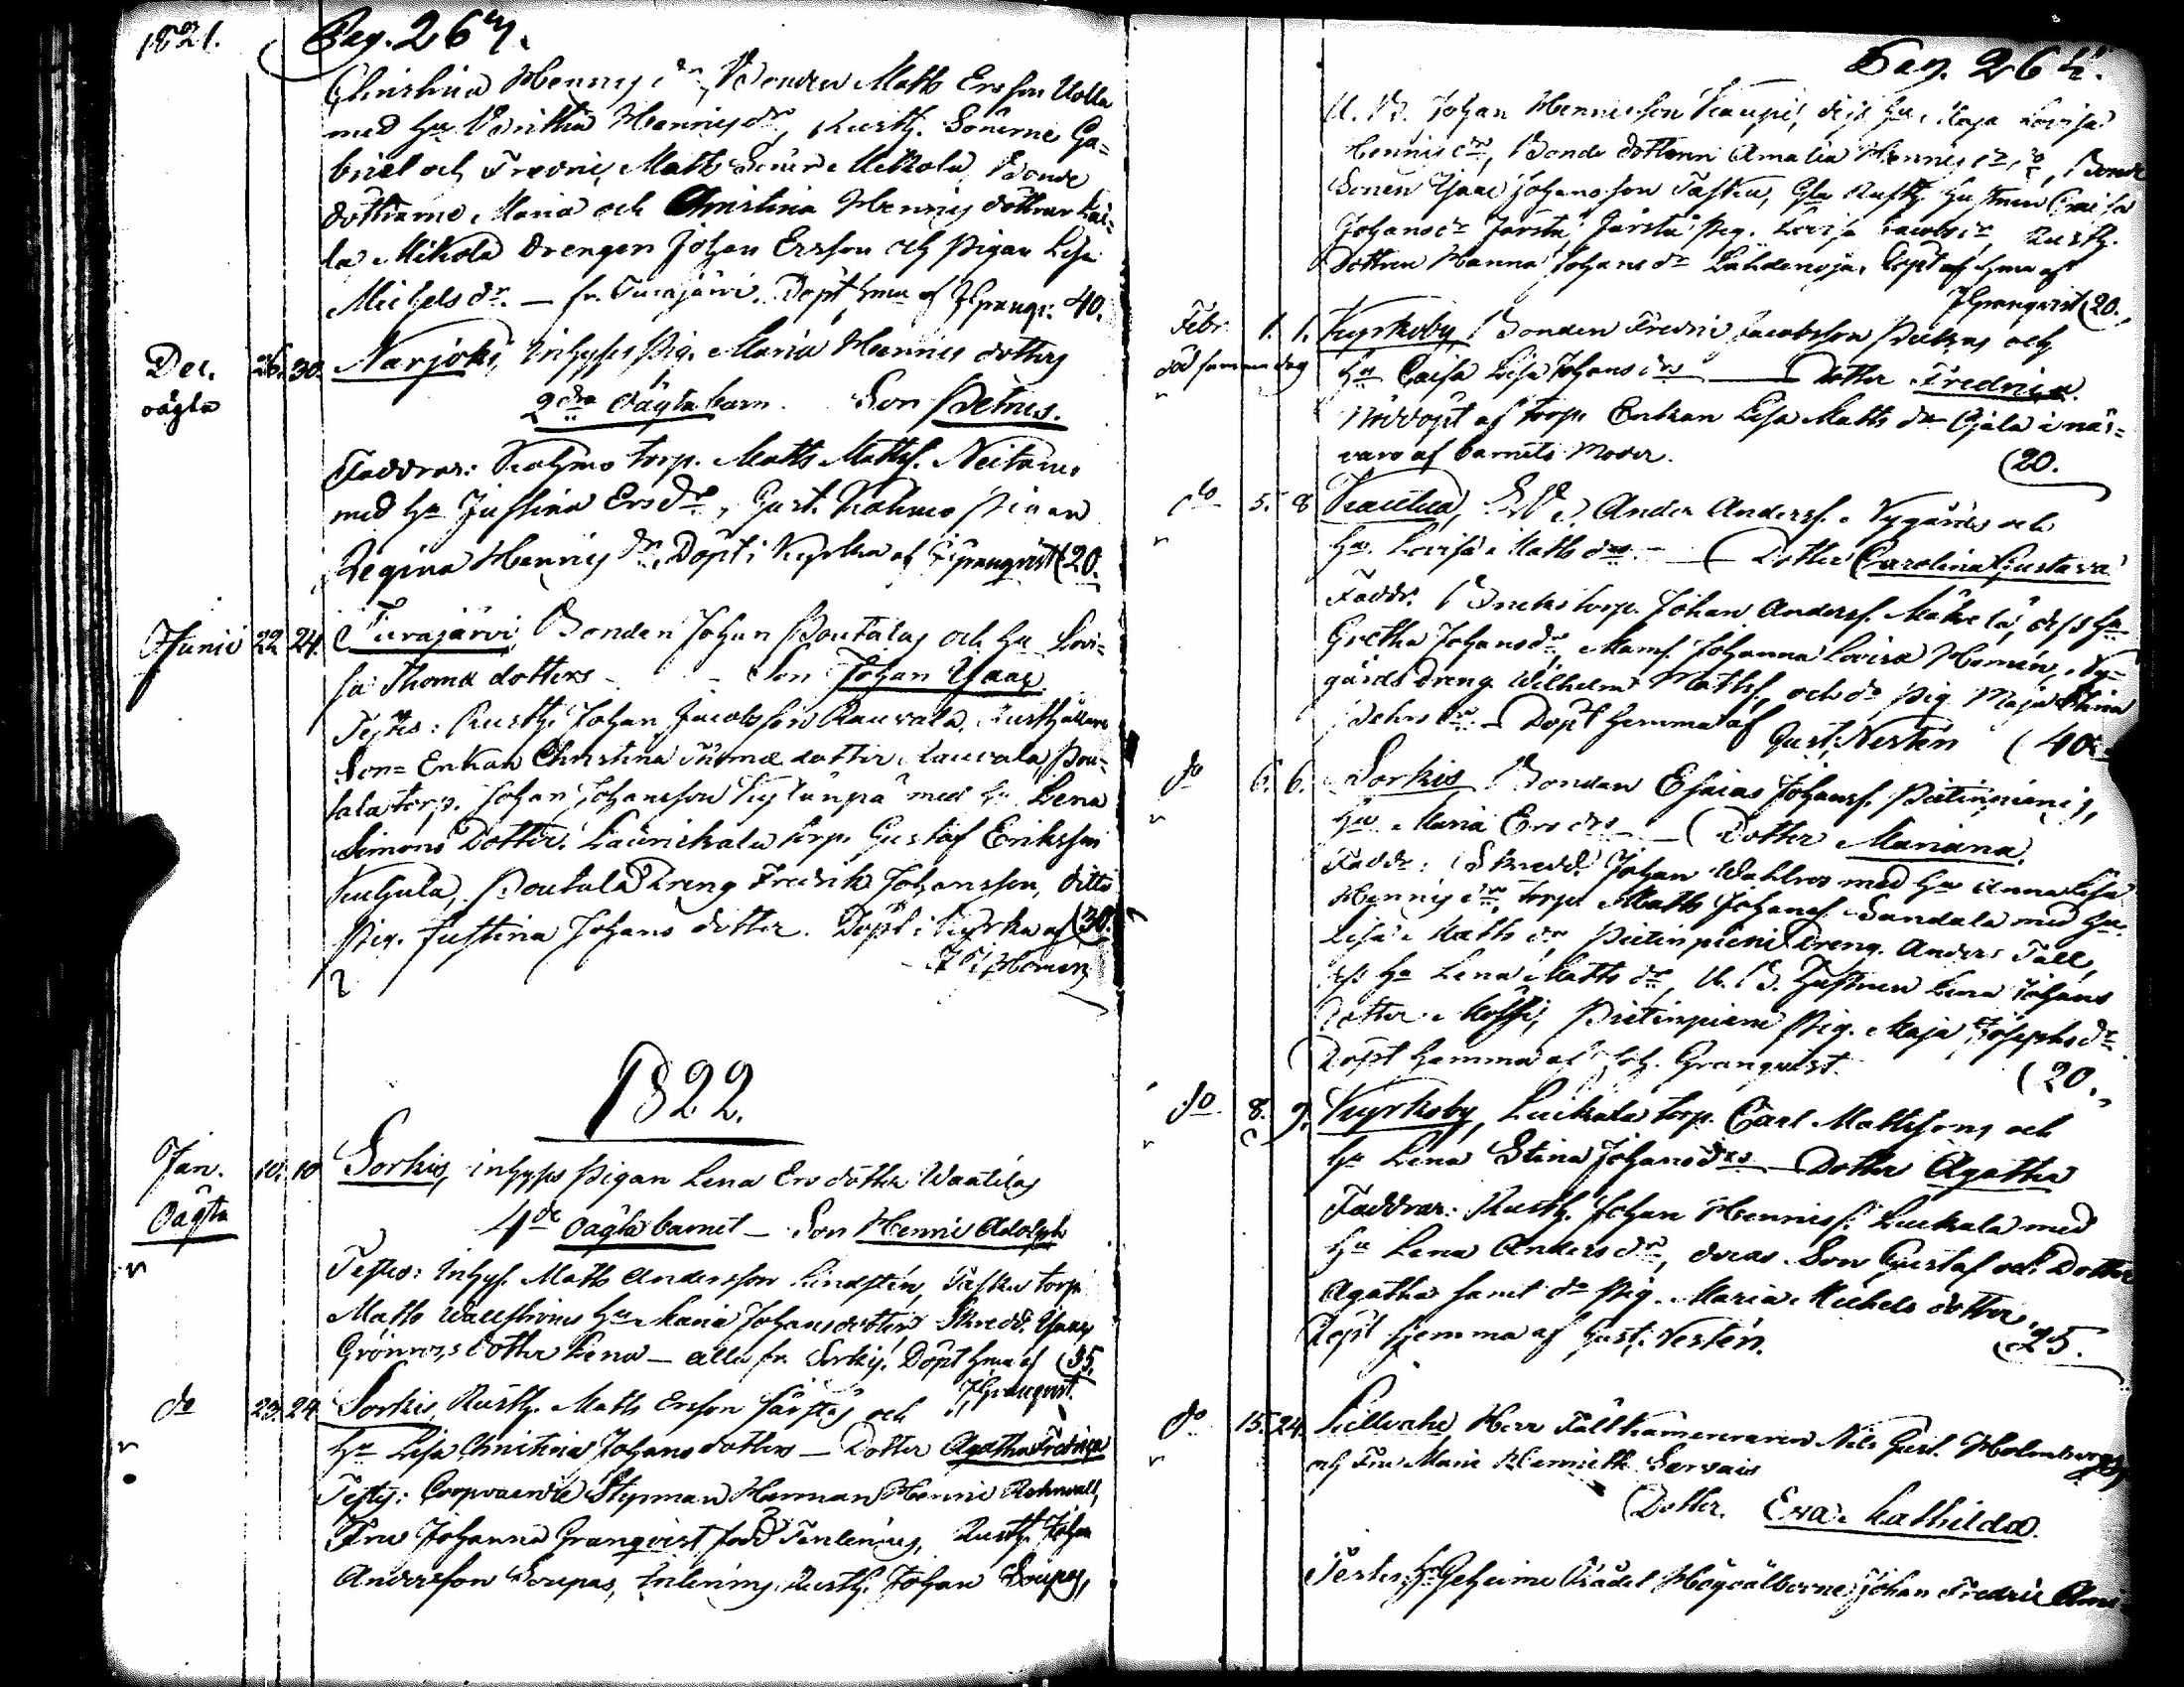 1821. Pag. 267.
Christina Hennis dr, Bonden Matts Ersson Uolla
med hu Britha Hennis dr, Rusth. Sönerne Ga=
briel och Fredric Matts Söner Mikola, Bonde
döttrarne Maria och Christina Hennis döttrar
la Mikola drengen Johan Ersson och pigan Lisa
Michels dr. — fr. Turajärvi. Döpt hma af JGranqv. 40.
Dec. 26. 30. Narjoki, inhyses pig. Maria Hennis dotters
oägta 2dra oägta barn. Son Petrus.
Faddrar: Kolhmo torp. Matts Mattss. Neitamo
med hu Justina Ersdr, Gust. Kolhmo pigan
Regina Hennis dr. Döpt i Kyrka af JGranqvist (20.
Junii 22 24. Turajärvi, Bonden Johan Poutalas och hu Lovi=
sa Thomæ dotters — Son Johan Isaac
Testes: Rusth. Johan Jacobsson Rauvala, Rusthållare
Son= Enkan Christina Thomæ dotter Rauvala, Pou=
tala torp. Johan Johansson Kylänpä med hu Lena
Simons Dotter, Laurickala torp. Gustaf Eriksson
Kuhula, Poutala Dreng Fredrik Johansson, ditto
Pig. Justina Johans dotter. Döpt i Kyrka af (30.
Homen
1822.
Jan. 10. 10 Sorkis, inhyses Pigan Lena Ers dotter Waatilas
Oägta 4de oägta barnet — Son Henric Adolph
Testes: inhys. Matts Andersson Lindsten, Tasku torp.
Matts Wallstroms hu Maria Johansdotter Skredd. Isaac
Grönroos dotter Lena — alla fr. Sorkis. Döpt hma af (35.
JGranqvist.
do 23. 24. Sorkis, Rusth. Matts Ersson Järstäs och
hu Lisa Christina Johans dotters — Dotter Agatha Fredrica
Testes: Coopvaerdie Styrman Herman Henric
Fru Johanna Granqvist född Tenlenius, Rusth. Johan
Andersson Soupas, Rusth. Johan Soupas,
Pag. 268.
U. B. Johan Hennisson Kaupi, dess hu Maja Lovisa
Hennis dr, Bonde dottern Amalia Hennis dr, Bonde
Sonen Isaac Johansson Tasku, Rusth. Hustrun Caisa
Johans dr Järstä, Järstä Pig. Lovisa Jacobs dr, Rusth.
Dottren Hanna Johans dr Lähdenoja. Döpt af hma af
JGranqvist (20.
Febr. 1. 1. Kyrkoby, Bonden Fredric Jacobsson Peltas och
död samma dag hu Caisa Lisa Johans drs — Dotter Fredrica.
Nöddöpt af torp. Enkan Lisa Matts dr Ojala i när=
varo af barnets Moder. (20.
do 5. 8 Kauttua, Ander Anderss. Nygårds och
hu. Lovisa Matts drs. — Dotter Carolina Gustava
Faddr. Bruks torp. Johan Anderss. Mäkelä, dess hu
Gretha Johansdr, Mams. Johanna Lovisa Homén, Ny=
gårds Dreng Wilhelm Mattss., och do Pig Maja Stina
Petersdr. — Döpt hemma af Gust. Nestén (40.
do 6. 6. Sorkis Bonden Esaias Johanss. Pietinpienis,
hu Maria Ers drs — Dotter Mariana.
Faddr: Skredd. Johan Wahlros med hu Anna Lisa
Hennis dr, torp. Matts Johanss. Sandala med hu
Lisa Matts dr, Pietinpieni Dreng. Anders Fall,
dess hu Lena Matts dr, U. B. Hustrun Lena Johans
Dotter Kossi, Pietinpieni Pig. Maja Josephs dr
Döpt hemma af Joh. Granqvist. (20.
do 8. 9. Kyrkoby, Luckala torp. Carl Mattssons och
hu Lena Stina Johansdrs — Dotter Agatha
Faddrar: Rusth. Johan Henniss. Luckala med
hu Lena Anders dr, deras Son Gustaf och Dotter
Agatha samt do Pig. Maria Michels dotter.
Döpt hemma af Gust. Nestén. (25.
do 15. 24. Herr Fältkamereraren Nils Gust. Holmbergs
och Fru Maria Henriette Gervais
Dotter. Eva Mathilda.
Testes. Hr Geheime Rådet Högvälborne Johan Fredric